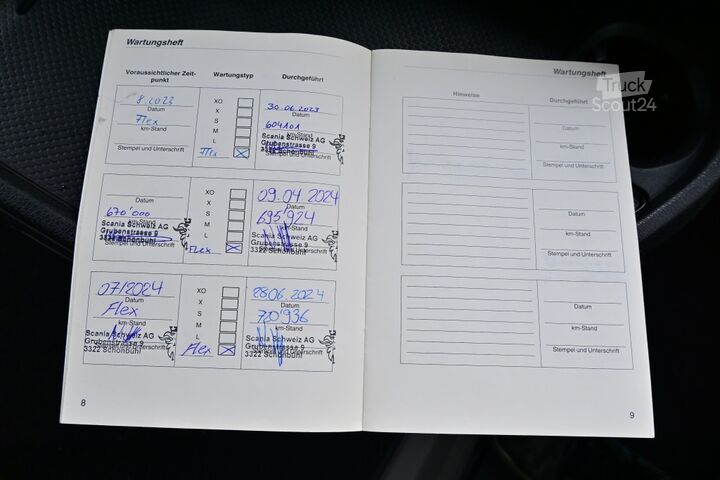 Wartungsheft
Voraussichtlicher Zeit-
punkt
Wartungstyp
Durchgeführt
8.2023
Datum
Flex
km-Stand
Stempel und Unterschrift
XO
X
S
M
L
Flex
30.06.2023
Datum
604101
km-Stand
Scania Schweiz AG
Grubenstrasse 9
3322 Schönbühl
Stempel und Unterschrift
Datum
670'000
km-Stand
Scania Schweiz AG
Grubenstrasse 9
3322 Schönbühl
Stempel und Unterschrift
XO
X
S
M
L
Flex
09.04 2024
Datum
695'924
km-Stand
Scania Schweiz AG
Grubenstrasse 9
3322 Schönbühl
Stempel und Unterschrift
07/2024
Datum
Flex
km-Stand
Scania Schweiz AG
Grubenstrasse 9
3322 Schönbühl
Stempel und Unterschrift
XO
X
S
M
L
Flex
28.06.2024
Datum
720'936
km-Stand
Scania Schweiz AG
Grubenstrasse 9
3322 Schönbühl
Stempel und Unterschrift
8
Wartungsheft
Hinweise
Durchgeführt
Datum
km-Stand
Stempel und Unterschrift
Datum
km-Stand
Stempel und Unterschrift
Datum
km-Stand
Stempel und Unterschrift
9
Truck
Scout24